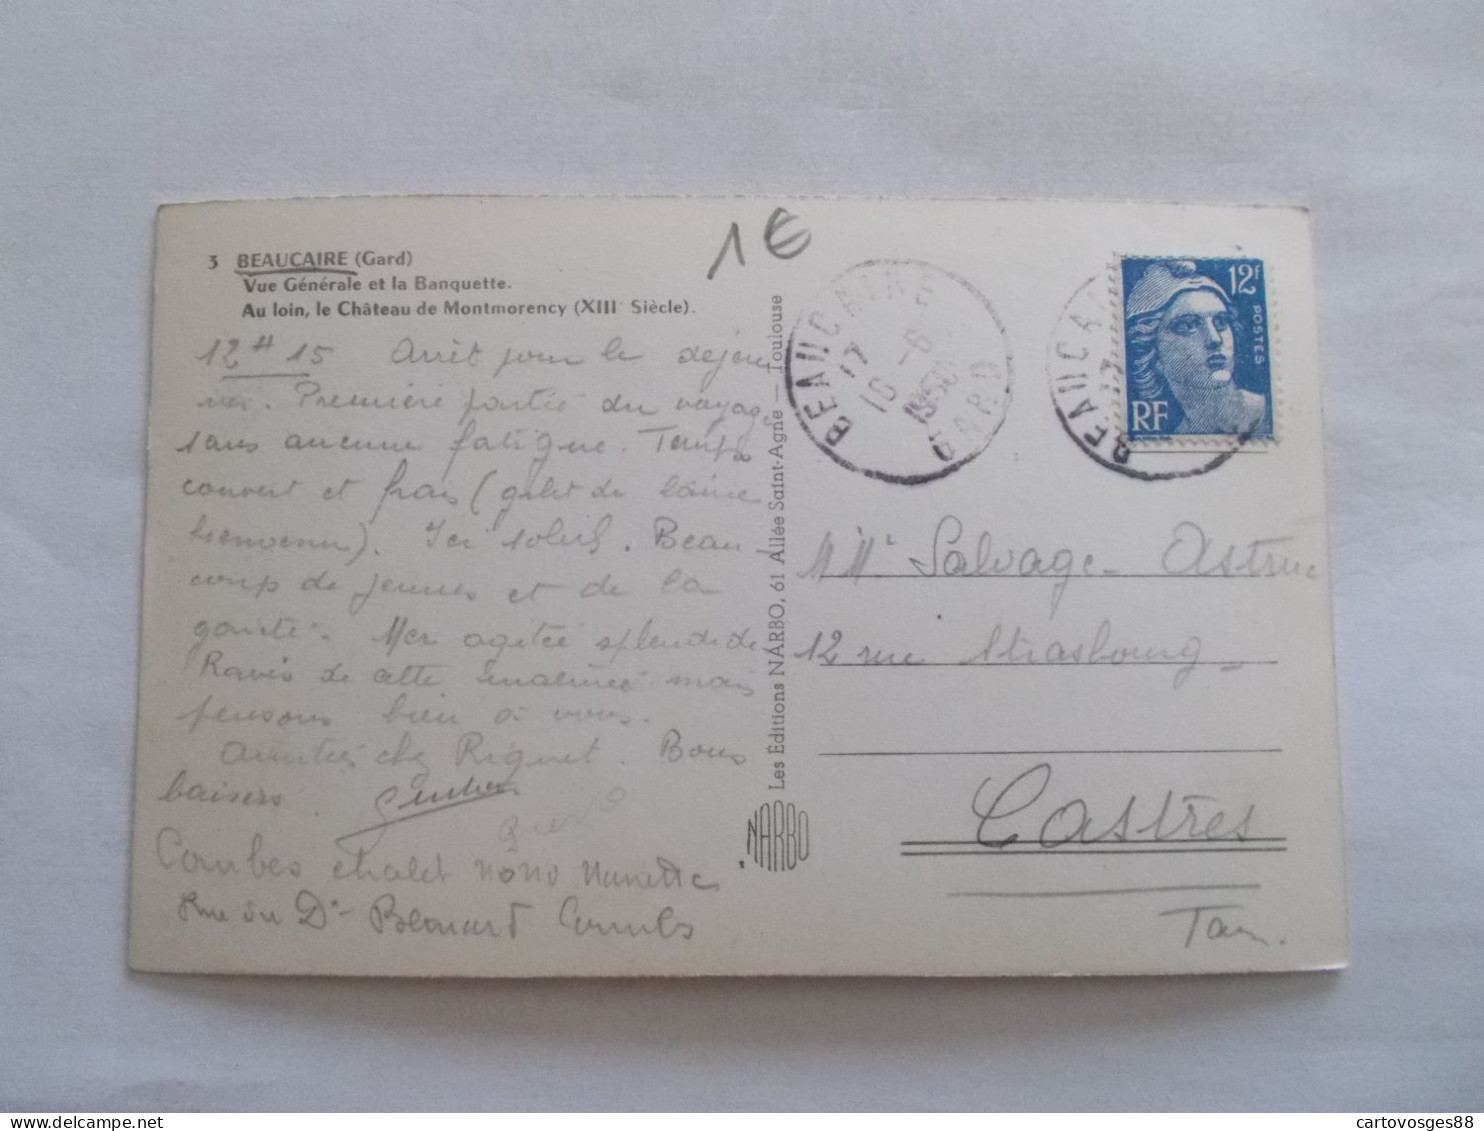 3 BEAUCAIRE (Gard)
Vue Générale et la Banquette.
Au loin, le Château de Montmorency (XIIIe Siècle).
1 €
12 H 15 Arrêt pour le déjeu
ner. Première partie du voyage
sans aucune fatigue. Temps
couvert et frais (gilet de laine
bienvenu). Ici soleil. Beau
coup de jeunes et de la
gaieté. Mer agitée splendide
Ravis de cette matinée mais
pensons bien à vous.
Amitiés chez Riquet. Bons
baisers.
Combes chalet nôno Nanette
Rue du Dr Combes
Les Éditions NARBO, 61 Allée Saint-Agne — Toulouse
NARBO
BEAUCAIRE
17
16 -6
1950
GARD
BEAUCA
17
12F
POSTES
RF
Salvage - Astruc
12 rue Strasbourg
Castres
Tarn.
cartovosges88